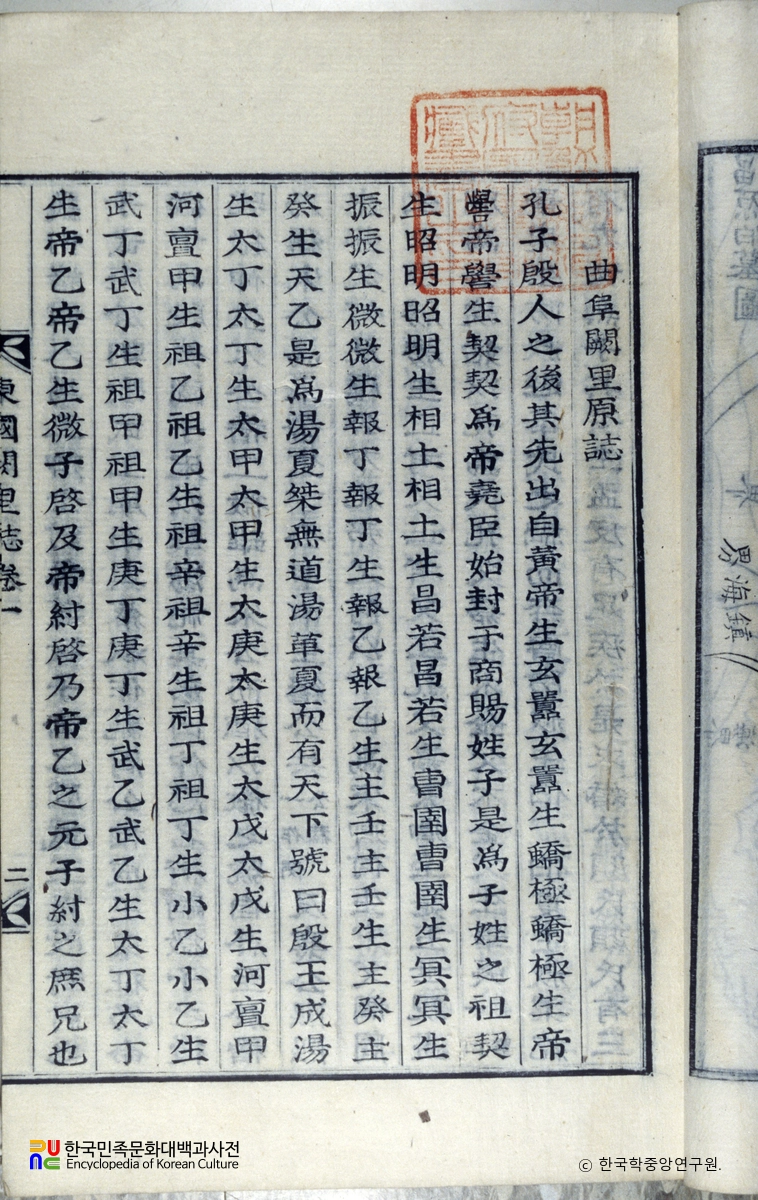 曲阜闕里原誌
孔子殷人之後其先出自黃帝生玄囂玄囂生蟜極蟜極生帝
嚳帝嚳生契契爲帝堯臣始封于商賜姓子是爲子姓之祖契
生昭明昭明生相土相土生昌若昌若生曺圉曺圉生冥冥生
振振生微微生報丁報丁生報乙報乙生主壬主壬生主癸主
癸生天乙是爲湯夏桀無道湯革夏而有天下號曰殷王成湯
生太丁太丁生太甲太甲生太庚太庚生太戊太戊生河亶甲
河亶甲生祖乙祖乙生祖辛祖辛生祖丁祖丁生小乙小乙生
武丁武丁生祖甲祖甲生庚丁庚丁生武乙武乙生太丁太丁
生帝乙帝乙生微子啓及帝紂啓乃帝乙之元子紂之庶兄也
東國闕里誌卷一
二
한국민족문화대백과사전
Encyclopedia of Korean Culture
ⓒ 한국학중앙연구원.